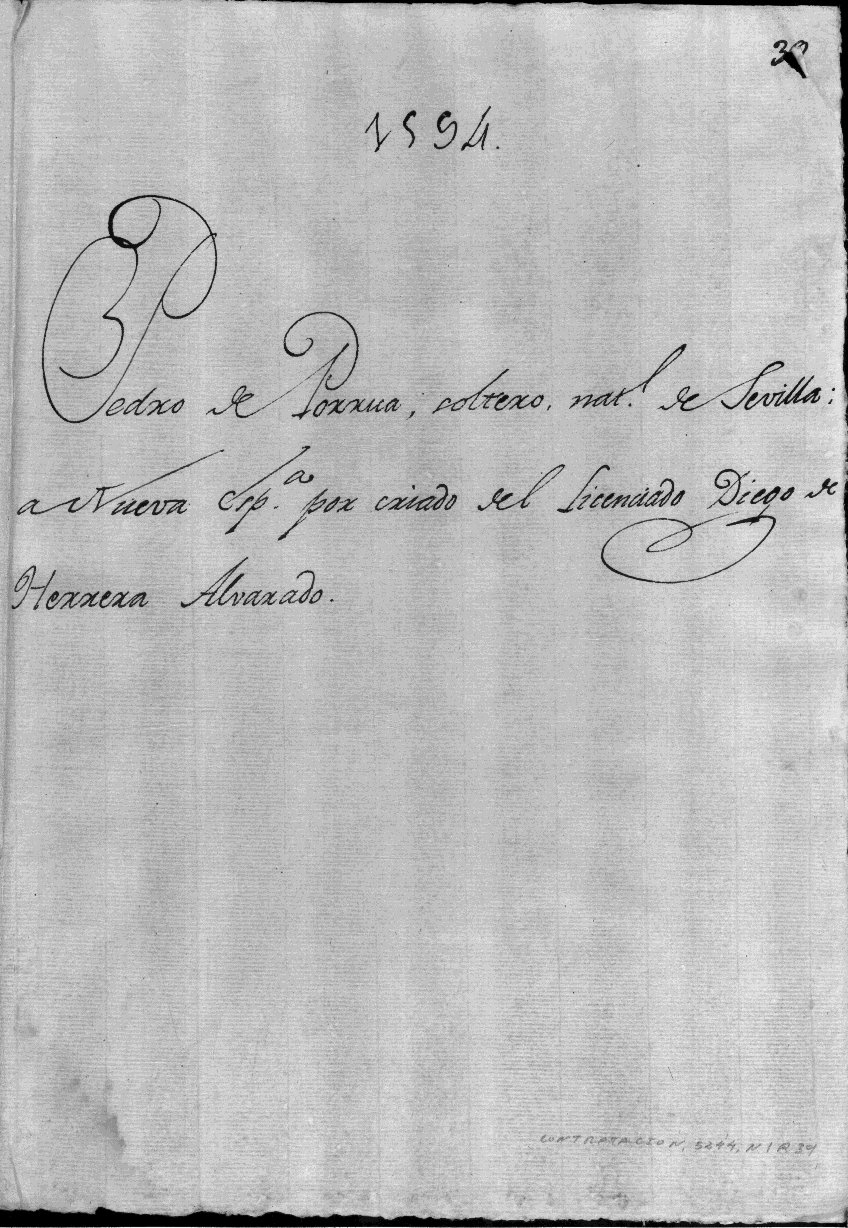 1594.
Pedro de Porrua, soltero, nat.l de Sevilla:
a Nueva Esp.a por criado del Licenciado Diego de
Herrera Alvarado.
CONTRATACION, 5244, N 1 R 34